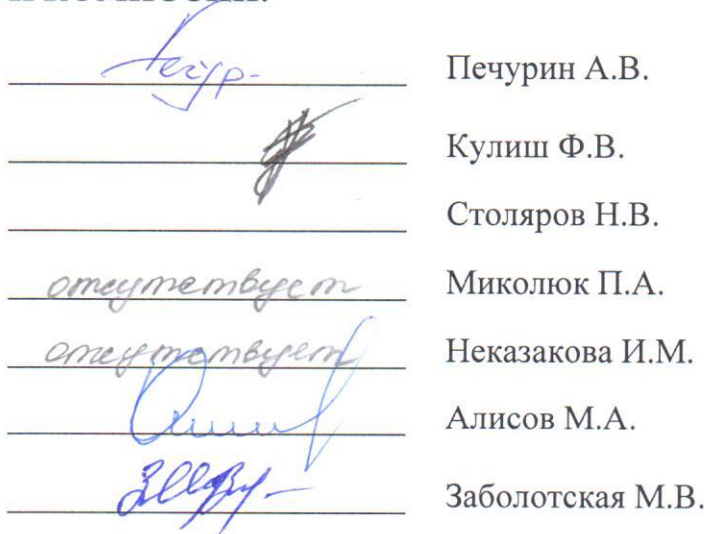 Печурин А.В.
Кулиш Ф.В.
Столяров Н.В.
отсутствует Миколюк П.А.
отсутствует Неказакова И.М.
Алисов М.А.
Заболотская М.В.